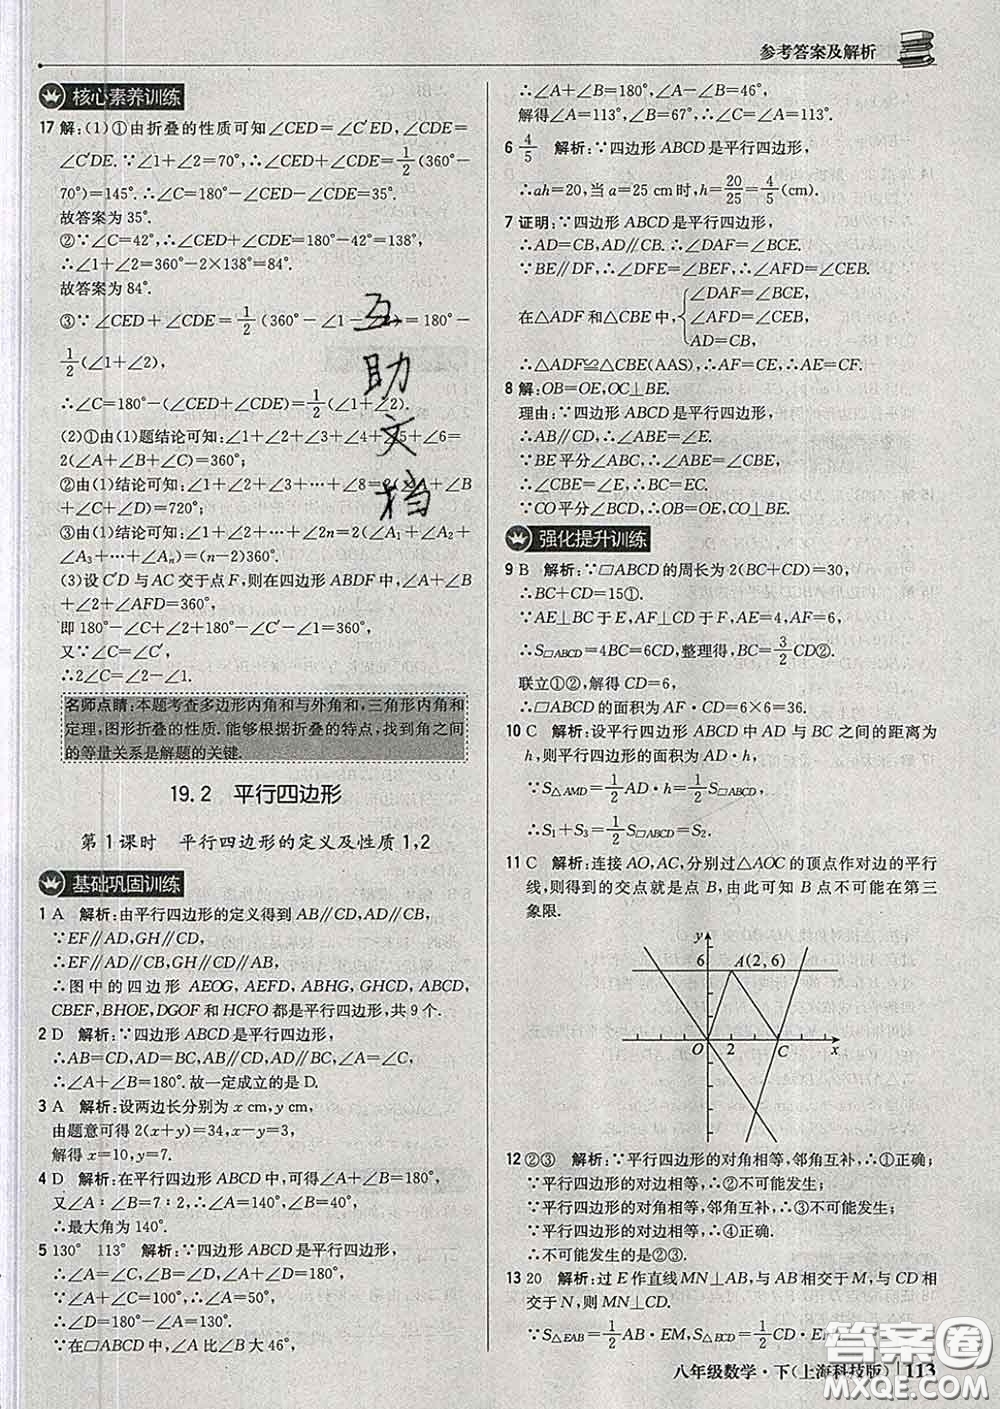 参考答案及解析
核心素养训练
17 解:(1)①由折叠的性质可知∠CED=∠C′ED,∠CDE=
∠C′DE.∵∠1+∠2=70°,∴∠CED+∠CDE=1/2(360°-
70°)=145°.∴∠C=180°-∠CED-∠CDE=35°.
故答案为 35°.
②∵∠C=42°,∴∠CED+∠CDE=180°-42°=138°,
∴∠1+∠2=360°-2×138°=84°.
故答案为 84°.
③∵∠CED+∠CDE=1/2(360°-∠1-∠2)=180°-
1/2(∠1+∠2),
∴∠C=180°-(∠CED+∠CDE)=1/2(∠1+∠2).
(2)①由(1)题结论可知:∠1+∠2+∠3+∠4+∠5+∠6=
2(∠A+∠B+∠C)=360°;
②由(1)结论可知:∠1+∠2+∠3+…+∠8=2(∠A+∠B
+∠C+∠D)=720°;
③由(1)结论可知:∠1+∠2+∠3+…+∠2n=2(∠A₁+∠A₂
+∠A₃+…+∠Aₙ)=(n-2)360°.
(3)设 C′D 与 AC 交于点 F,则在四边形 ABDF 中,∠A+∠B
+∠2+∠AFD=360°,
即 180°-∠C+∠2+180°-∠1-∠C′=360°,
又∵∠C=∠C′,
∴2∠C=∠2-∠1.
名师点睛:本题考查多边形内角和与外角和,三角形内角和
定理,图形折叠的性质.能够根据折叠的特点,找到角之间
的等量关系是解题的关键.
19.2 平行四边形
第 1 课时 平行四边形的定义及性质 1,2
基础巩固训练
1 A 解析:由平行四边形的定义得到 AB∥CD,AD∥CB,
∵EF∥AD,GH∥CD,
∴EF∥AD∥CB,GH∥CD∥AB,
∴图中的四边形 AEOG,AEFD,ABHG,GHCD,ABCD,
CBEF,BHOE,DGOF 和 HCFO 都是平行四边形,共 9 个.
2 D 解析:∵四边形 ABCD 是平行四边形,
∴AB=CD,AD=BC,AB∥CD,AD∥BC,∠A=∠C,
∴∠A+∠B=180°.故一定成立的是 D.
3 A 解析:设两边长分别为 x cm,y cm,
由题意可得 2(x+y)=34,x-y=3,
解得 x=10,y=7.
4 D 解析:在平行四边形 ABCD 中,可得∠A+∠B=180°,
又∠A∶∠B=7∶2,∴∠A=140°,∠B=40°,
∴最大角为 140°.
5 130° 113° 解析:∵四边形 ABCD 是平行四边形,
∴∠A=∠C,∠A+∠D=180°,
∵∠A+∠C=100°,∴∠A=50°,
∴∠D=180°-∠A=130°.
∵在□ABCD 中,∠A 比∠B 大 46°,
∴∠A+∠B=180°,∠A-∠B=46°,
解得∠A=113°,∠B=67°,∴∠C=∠A=113°.
6 4/5 解析:∵四边形 ABCD 是平行四边形,
∴ah=20,当 a=25 cm 时,h=20/25=4/5(cm).
7 证明:∵四边形 ABCD 是平行四边形,
∴AD=CB,AD∥CB.∴∠DAF=∠BCE.
∵BE∥DF,∴∠DFE=∠BEF,∴∠AFD=∠CEB.
在△ADF 和△CBE 中,{∠DAF=∠BCE,
∠AFD=∠CEB,
AD=CB,
∴△ADF≌△CBE(AAS),∴AF=CE,∴AE=CF.
8 解:OB=OE,OC⊥BE.
理由:∵四边形 ABCD 是平行四边形,
∴AB∥CD,∴∠ABE=∠E.
∵BE 平分∠ABC,∴∠ABE=∠CBE,
∴∠CBE=∠E,∴BC=EC.
∵CO 平分∠BCD,∴OB=OE,CO⊥BE.
强化提升训练
9 B 解析:∵□ABCD 的周长为 2(BC+CD)=30,
∴BC+CD=15①.
∵AE⊥BC 于 E,AF⊥CD 于 F,AE=4,AF=6,
∴S□ABCD=4BC=6CD,整理得,BC=3/2CD②.
联立①②,解得 CD=6.
∴□ABCD 的面积为 AF·CD=6×6=36.
10 C 解析:设平行四边形 ABCD 中 AD 与 BC 之间的距离为
h,则平行四边形的面积为 AD·h;
∵S△AMD=1/2AD·h=1/2S□ABCD,
∴S₁+S₃=1/2S□ABCD=S₂.
11 C 解析:连接 AO,AC,分别过△AOC 的顶点作对边的平行
线,则得到的交点就是点 B,由此可知 B 不可能在第三
象限.
y
6
A(2,6)
O 2 C x
12 ②③ 解析:∵平行四边形的对角相等,邻角互补,∴①正确;
∵平行四边形的对边相等,∴②不可能发生;
∵平行四边形的对角相等,邻角互补,∴③不可能发生;
∵平行四边形的对边相等,∴④正确.
∴不可能发生的是②③.
13 20 解析:过 E 作直线 MN⊥AB,与 AB 相交于 M,与 CD 相
交于 N,则 MN⊥CD.
∵S△EAB=1/2AB·EM,S△ECD=1/2CD·EN,
互
助
文
档
答案圈
MXQE.COM
八年级数学·下(上海科技版) 113